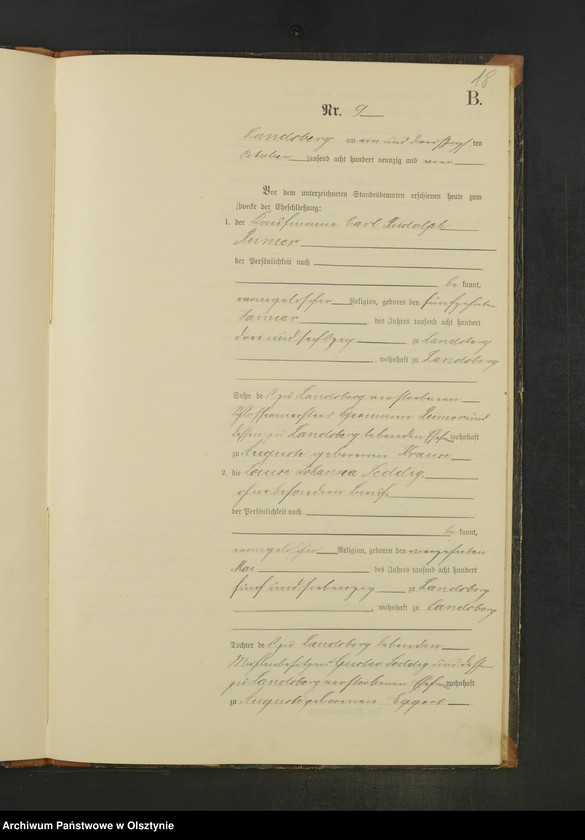 18
B.
Nr. 9
Landsberg am ein und dreißigsten
October tausend acht hundert neunzig und vier
Vor dem unterzeichneten Standesbeamten erschienen heute zum
Zwecke der Eheschließung:
1. der Kaufmann Carl Rudolph
Reimer
der Persönlichkeit nach
be kannt,
evangelischer Religion, geboren den fünfzehnten
Januar des Jahres tausend acht hundert
drei und sechszig zu Landsberg
, wohnhaft zu Landsberg
Sohn des zu Landsberg verstorbenen
Schlossermeisters Hermann Reimer und
dessen zu Landsberg lebenden Ehefrau wohnhaft
zu Auguste geborenen Krause
2. die Johanna Seddig
ohne besondern Beruf
der Persönlichkeit nach
be kannt,
evangelischer Religion, geboren den vierzehnten
Mai des Jahres tausend acht hundert
fünf und siebenzig zu Landsberg
, wohnhaft zu Landsberg
Tochter des zu Landsberg lebenden
Mühlenbesitzers Gustav Seddig und dessen
zu Landsberg verstorbenen Ehefrau wohnhaft
zu Auguste geborenen Eggert
Archiwum Państwowe w Olsztynie